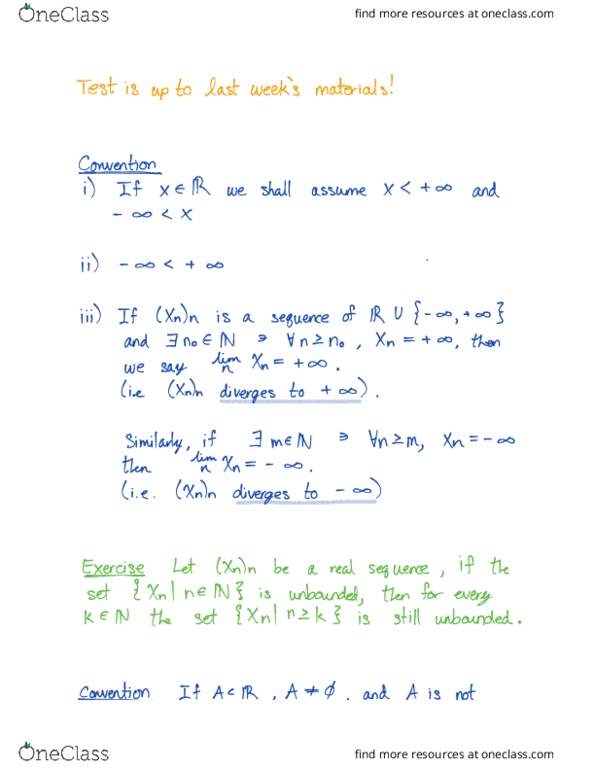 OneClass
find more resources at oneclass.com
Test is up to last week's materials!
Convention
i) If x ∈ ℝ we shall assume x < +∞ and
-∞ < x
ii) -∞ < +∞
iii) If (Xn)n is a sequence of ℝ ∪ {-∞, +∞}
and ∃ n₀ ∈ ℕ ∋ ∀n ≥ n₀, Xn = +∞, then
we say lim n Xn = +∞.
(i.e (Xn)n diverges to +∞).
Similarly, if ∃ m ∈ ℕ ∋ ∀n ≥ m, Xn = -∞
then lim n Xn = -∞.
(i.e. (Xn)n diverges to -∞)
Exercise Let (Xn)n be a real sequence, if the
set {Xn | n ∈ ℕ} is unbounded, then for every
k ∈ ℕ the set {Xn | n ≥ k} is still unbounded.
Convention If A ⊂ ℝ, A ≠ ∅. and A is not
OneClass
find more resources at oneclass.com